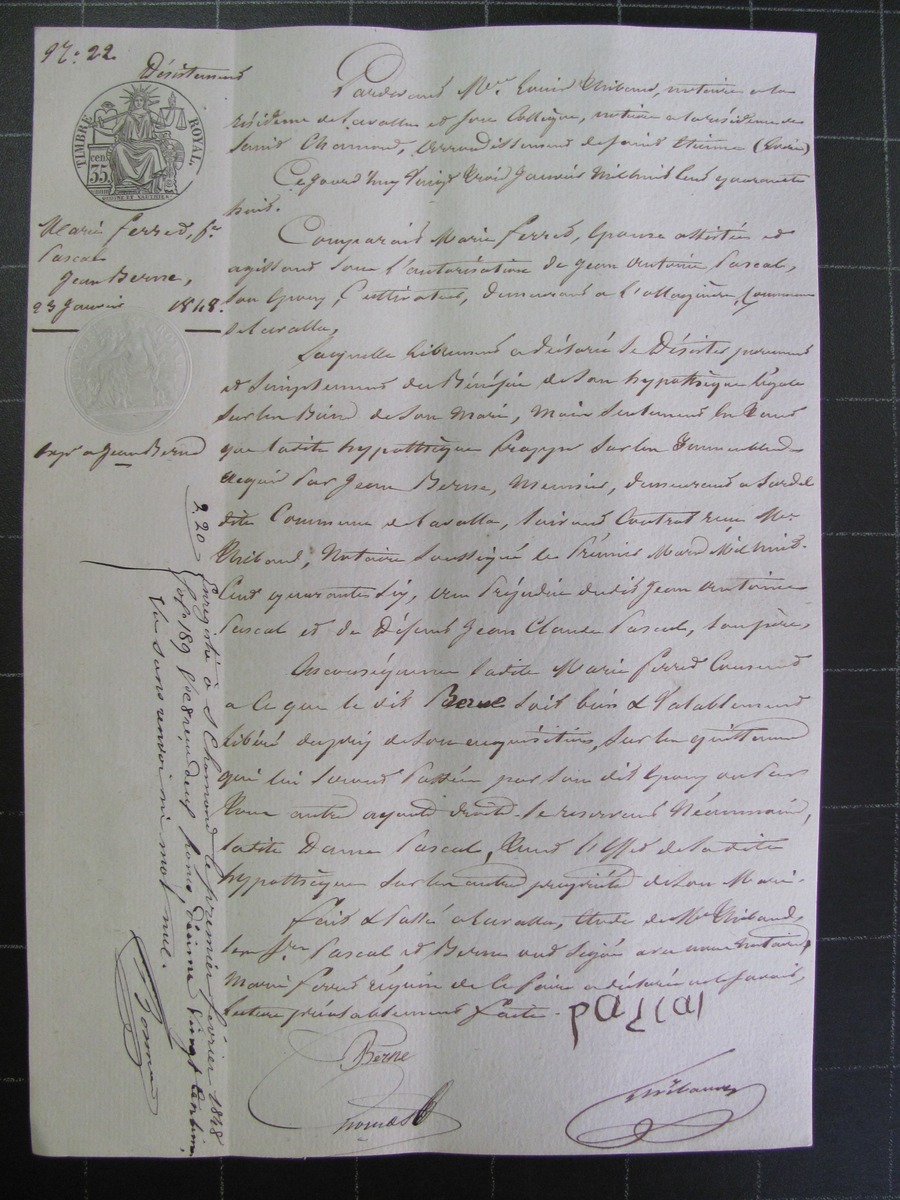 N°. 22.
Désistement
TIMBRE ROYAL
35 cen
Marie Ferred, fe
Pascal
Jean Berne,
23 Janvier 1848.
Exp. a Jean Berne
Pardevant Mre Louis Thibaud, notaire a la
résidence de Lavalla et son Collègue, notaire a la résidence de
Saint Chamond, arrondissement de Saint Etienne (Loire)
Ce jourd'huy Vingt Trois Janvier Mil huit Cent quarante
huit.
Comparait Marie Ferred, Epouse assistée et
agissant sous l'autorisation de Jean Antoine Pascal,
son Epoux, Cultivateur, demeurant a Commune
de Lavalla,
Laquelle librement a déclaré se Désister purement
et Simplement du Bénéfice de Son hypothèque légale
sur les Biens de Son Mari, Mais Seulement En tant
que ladite hypothèque frappe Sur les Immeubles
acquis Par Jean Berne, Meunier, demeurant a
dite Commune de Lavalla, suivant Contrat reçu Me
Thibaud, Notaire Soussigné le Premier Mars Mil huit
Cent quarante Six, au Préjudice dudit Jean Antoine
Pascal et de Défunt Jean Claude Pascal, Son père,
En conséquence ladite Marie Ferred Consent
a Ce que le dit Berne soit bien & Valablement
libéré du prix de Son acquisition, Sur les quittances
qui lui Seront Passées par Son dit Epoux ou Par
Tous autres ayants droits. Se réservant Néanmoins,
ladite Dame Pascal, Tout l'Effet de la dite
hypothèque Sur les autres propriétés de Son Mari.
Fait & Passé a Lavalla, Etude de Me Thibaud,
les Srs Pascal et Berne ont Signé avec nous Notaires,
Marie Ferred réquise de le faire a déclaré ne le savoir,
lecture préalablement faite.
PASCAL
Berne
Thibaud
2,20 Enregistré à St Chamond le premier février 1848
fo 189 Vo C 8 reçu deux francs, dixième Vingt Centimes,
Vu sans renvoi ni mot nul.